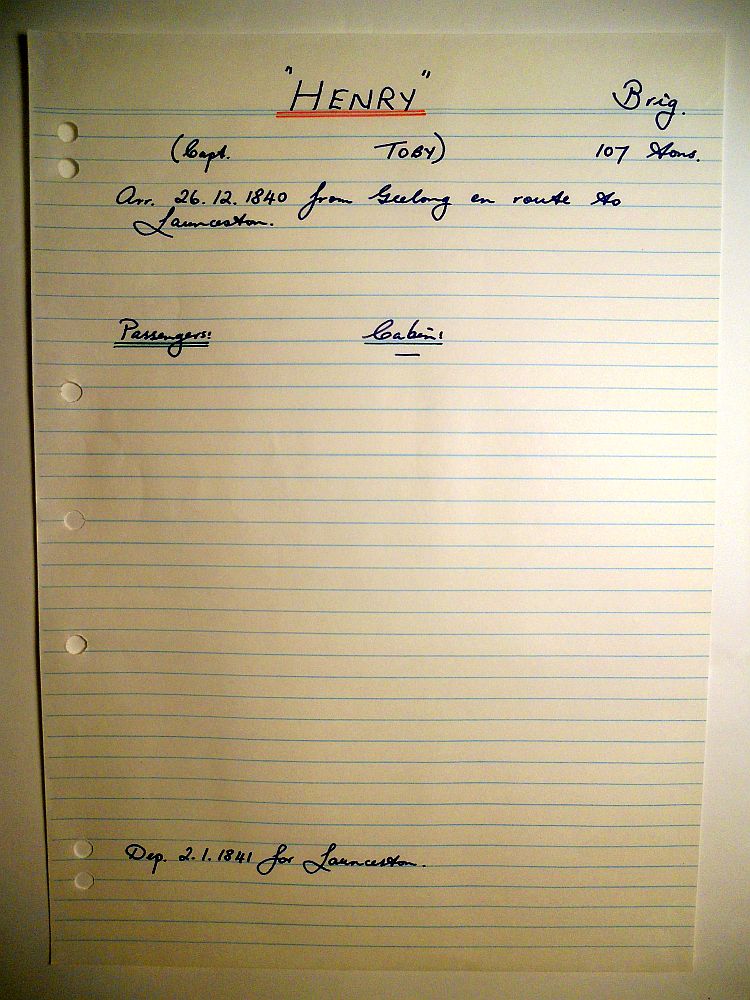 "HENRY" Brig.
(Capt. TOBY) 107 tons.
Arr. 26.12.1840 from Geelong en route to
Launceston.
Passengers: Cabin:
—
Dep. 2.1.1841 for Launceston.